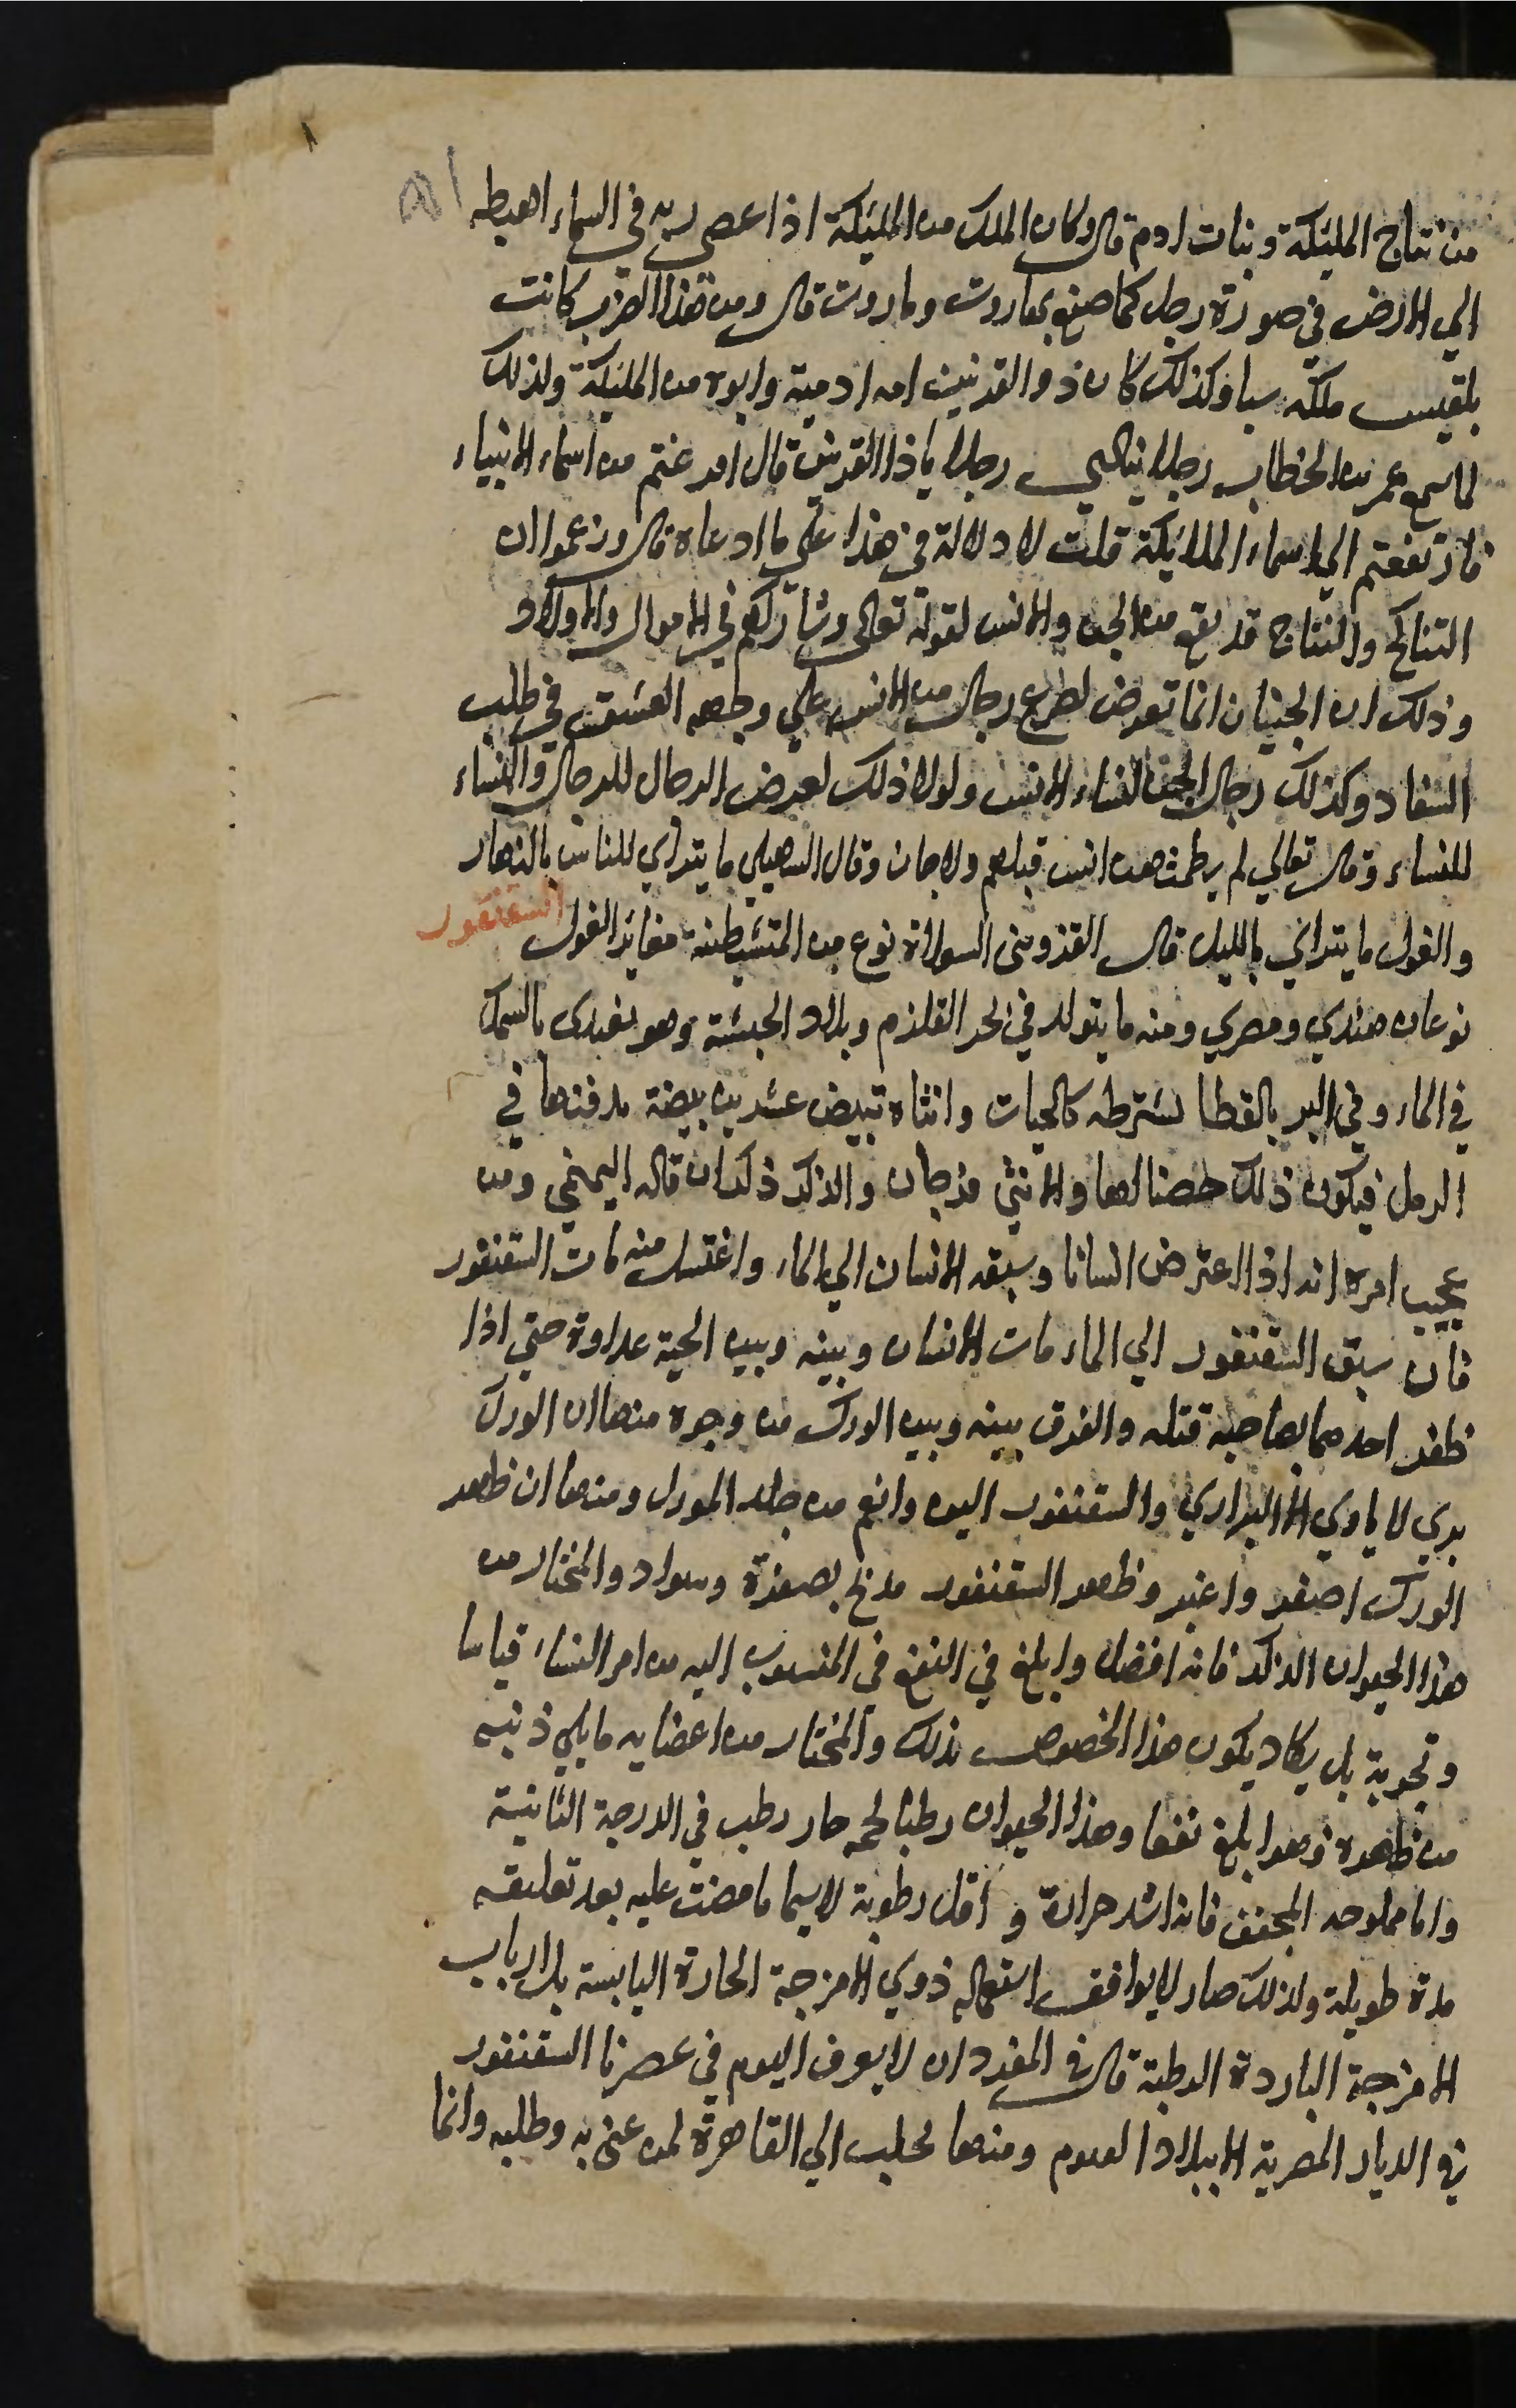 ٨١
من نتاج المليكة وبنات ادم قال وكان الملك من المليكة اذا عصى ربه في السماء اهبطه
الي الارض في صورة رجل كما صنع بهاروت وماروت قال ومن هذا الضرب كانت
بلقيس ملكة سبا وكذلك كان ذو القرنين امه ادمية وابوه من المليكة ولذلك
لما سمع عمر بن الخطاب رجلا ينادي رجلا ياذا القرنين قال افرغتم من اسماء الانبياء
فارتفعتم الي اسماء الملايكة قلت لا دلالة في هذا علي ما ادعاه قال وزعموا ان
التناكح والنتاج قد يقع من الجن والانس لقوله تعالى وشاركهم في الاموال والاولاد
وذلك ان الجنيات انما تعرض لصرع رجال من الانس علي وجهه العشق في طلب
السفاد وكذلك رجال الجن لنساء الانس ولولا ذلك لعرض الرجال للرجال والنساء
للنساء وقال تعالي لم يطمثهن انس قبلهم ولا جان وقال السهيلي ما يتراي للناس بالنهار
والغول ما يتراي بالليل قال القزويني السعلاة نوع من المتشيطنة مغاير الغول السقنقور
نوعان هندي ومصري ومنه ما يتولد في بحر القلزم وبلاد الحبشة وهو يغتدى بالسمك
في الماء وفي البر بالقطا يسترطه كالحيات وانثاه تبيض عشرين بيضة يدفنها في
الرمل فيكون ذلك حضنا لها وللانثي فرجان وللذكر ذكران قاله اليمني ومن
عجيب امره انه اذا اعترض انسانا وسبقه الانسان الي الماء واغتسل منه مات السقنقور
فان سبق السقنقور الي الماء مات الانسان وبينه وبين الحية عداوة حتي اذا
ظفر احدهما بصاحبه قتله والفرق بينه وبين الورل من وجوه منها ان الورل
بري لا ياوي الا البراري والسقنقور الين وانعم من جلد الورل ومنها ان ظهر
الورل اصفر واغبر وظهر السقنقور مدبج بصفرة وسواد والمختار من
هذا الحيوان الذكر فانه افضل وابلغ في النفع في المنسوب اليه من امر النساء قياسا
وتجربة بل يكاد يكون هذا الخصوص بذلك والمختار من اعضايه ما يلي ذنبه
من ظهره فهو ابلغ نفعا وهذا الحيوان رطبا لحمه حار رطب في الدرجة الثانية
واما مملوحه المجفف فانه اشد حرارة و اقل رطوبة لاسيما ما مضت عليه بعد تعليقه
مدة طويلة ولذلك صار لايوافق استعماله ذوي الامزجة الحارة اليابسة بل ارباب
الامزجة الباردة الرطبة قال في المفردات لا يعرف اليوم في عصرنا السقنقور
في الديار المصرية الا ببلاد الفيوم ومنها يجلب الي القاهرة لمن عني به وطلبه وانما